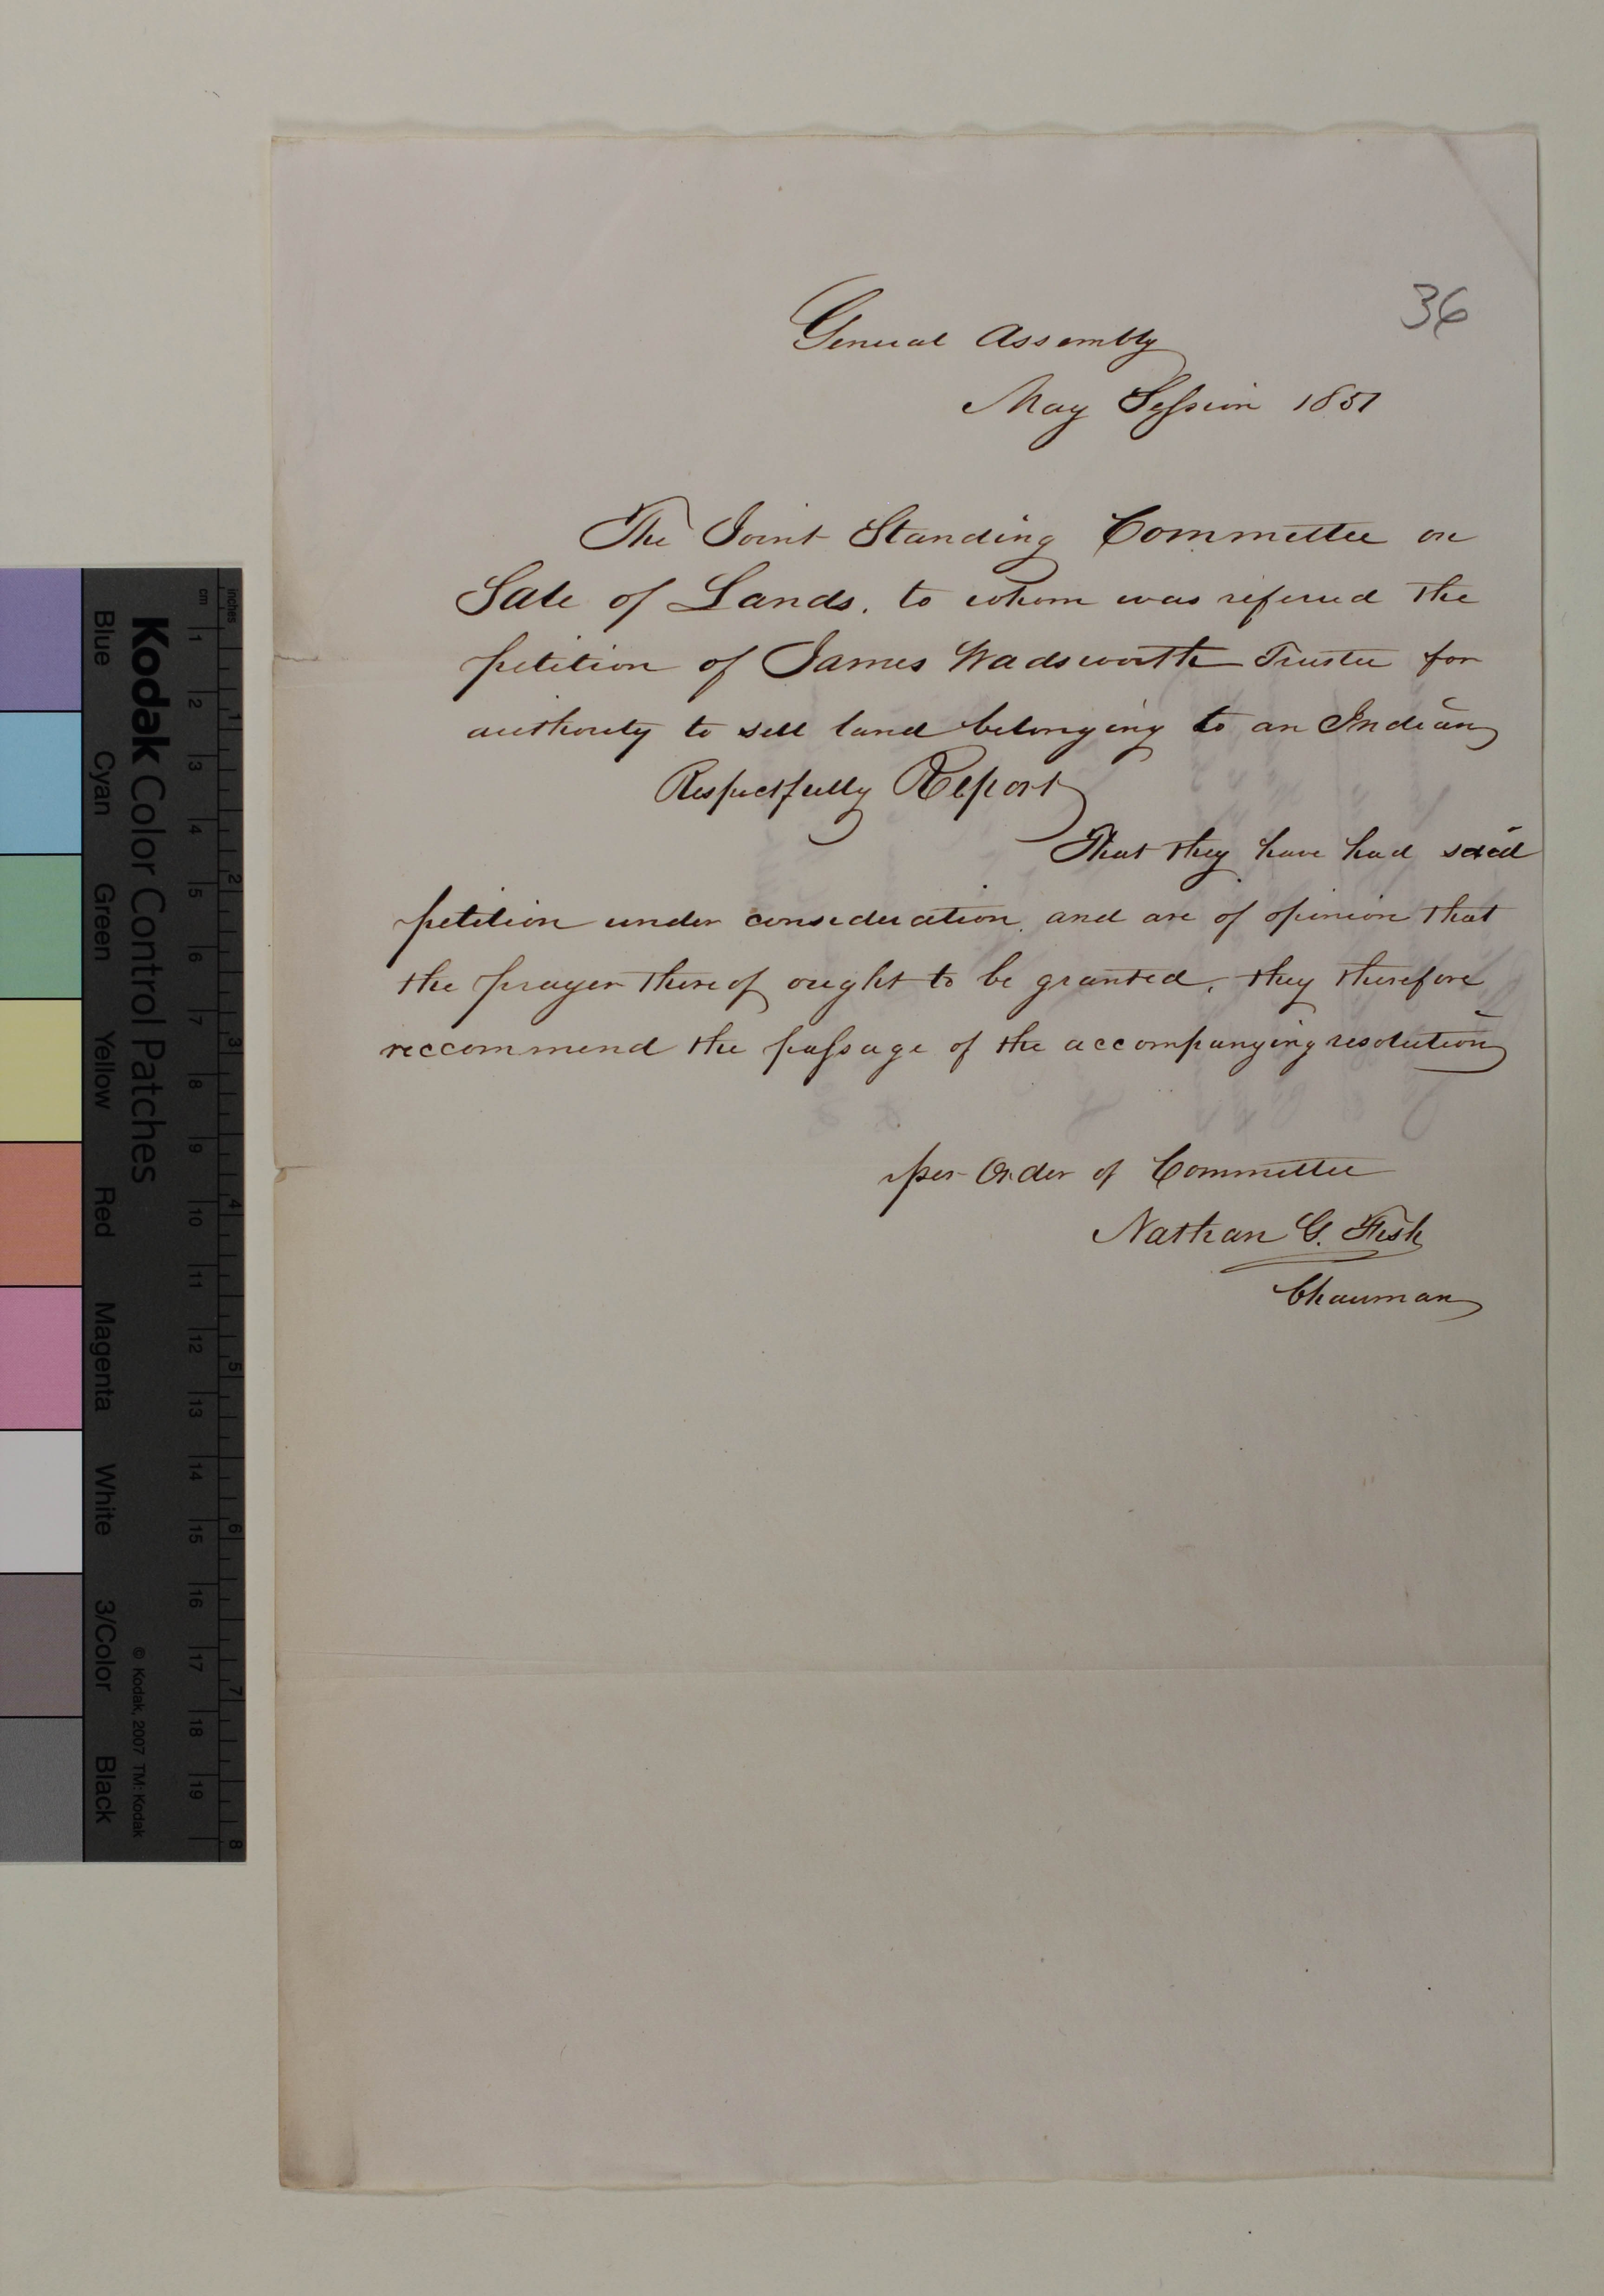 36
General Assembly
May Session 1851
The Joint Standing Committee on
Sale of Lands, to whom was referred the
petition of James Wadsworth Trustee for
authority to sell land belonging to an Indian
Respectfully Report
That they have had said
petition under consideration, and are of opinion that
the prayer thereof ought to be granted, they therefore
reccommend the passage of the accompanying resolution
per Order of Committee
Nathan G. Fish
Chairman
inches
cm
1 2 3 4 5 6 7 8
1 2 3 4 5 6 7 8 9 10 11 12 13 14 15 16 17 18 19
Kodak Color Control Patches
© Kodak, 2007 TM: Kodak
Blue Cyan Green Yellow Red Magenta White 3/Color Black